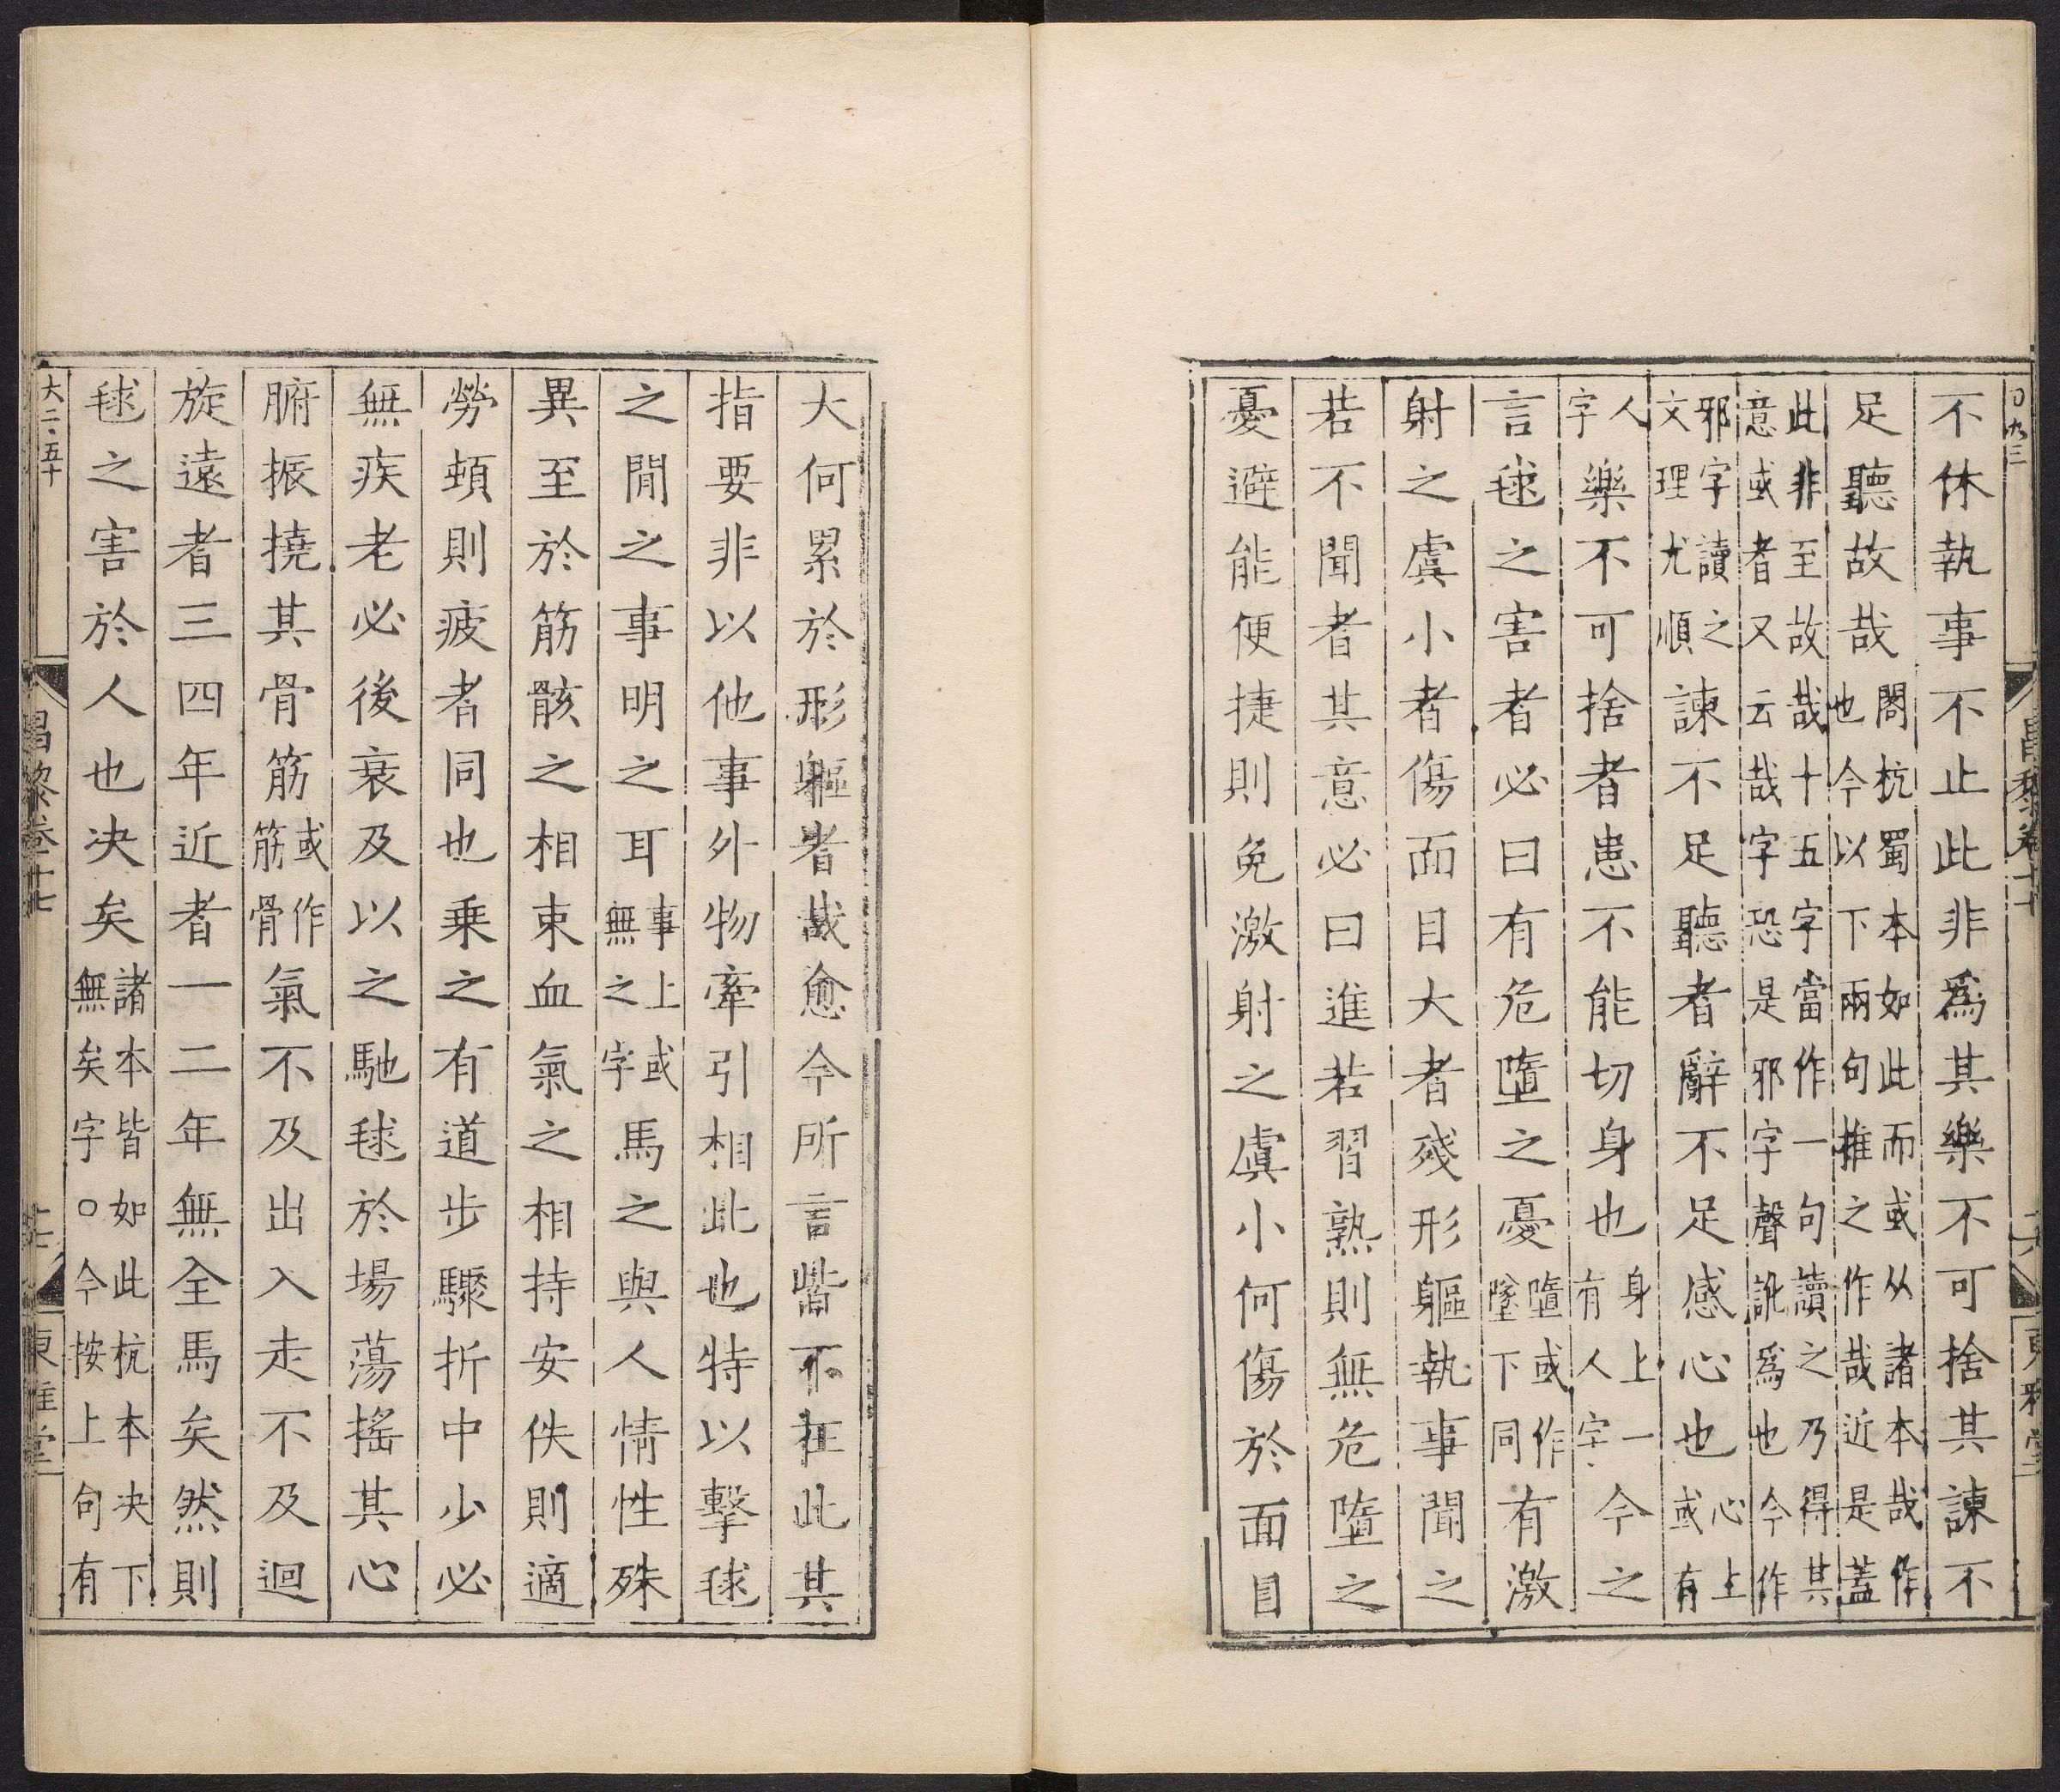 不休執事不止此非爲其樂不可捨其諫不
足聽故哉閣杭蜀本如此而或从諸本哉作也今以下兩句推之作哉近是蓋
此非至故哉十五字當作一句讀之乃得其意或者又云哉字恐是邪字聲訛爲也今作
邪字讀之文理尤順諫不足聽者辭不足感心也心上或有
人字樂不可捨者患不能切身也身上一有人字今之
言毬之害者必曰有危墮之憂墮或作墜下同有激
射之虞小者傷面目大者殘形軀執事聞之
若不聞者其意必曰進若習熟則無危墮之
憂避能便捷則免激射之虞小何傷於面目
大何累於形軀者哉愈今所言皆不在此其
指要非以他事外物牽引相此也特以擊毬
之閒之事明之耳事上或無之字馬之與人情性殊
異至於筋骸之相束血氣之相持安佚則適
勞頓則疲者同也乗之有道步驟折中少必
無疾老必後衰及以之馳毬於場蕩搖其心
腑振撓其骨筋或作筋骨氣不及出入走不及迴
旋遠者三四年近者一二年無全馬矣然則
毬之害於人也决矣諸本皆如此杭本决下無矣字○今按上句有
大二、五十
昌黎卷十七
十七
東雅堂